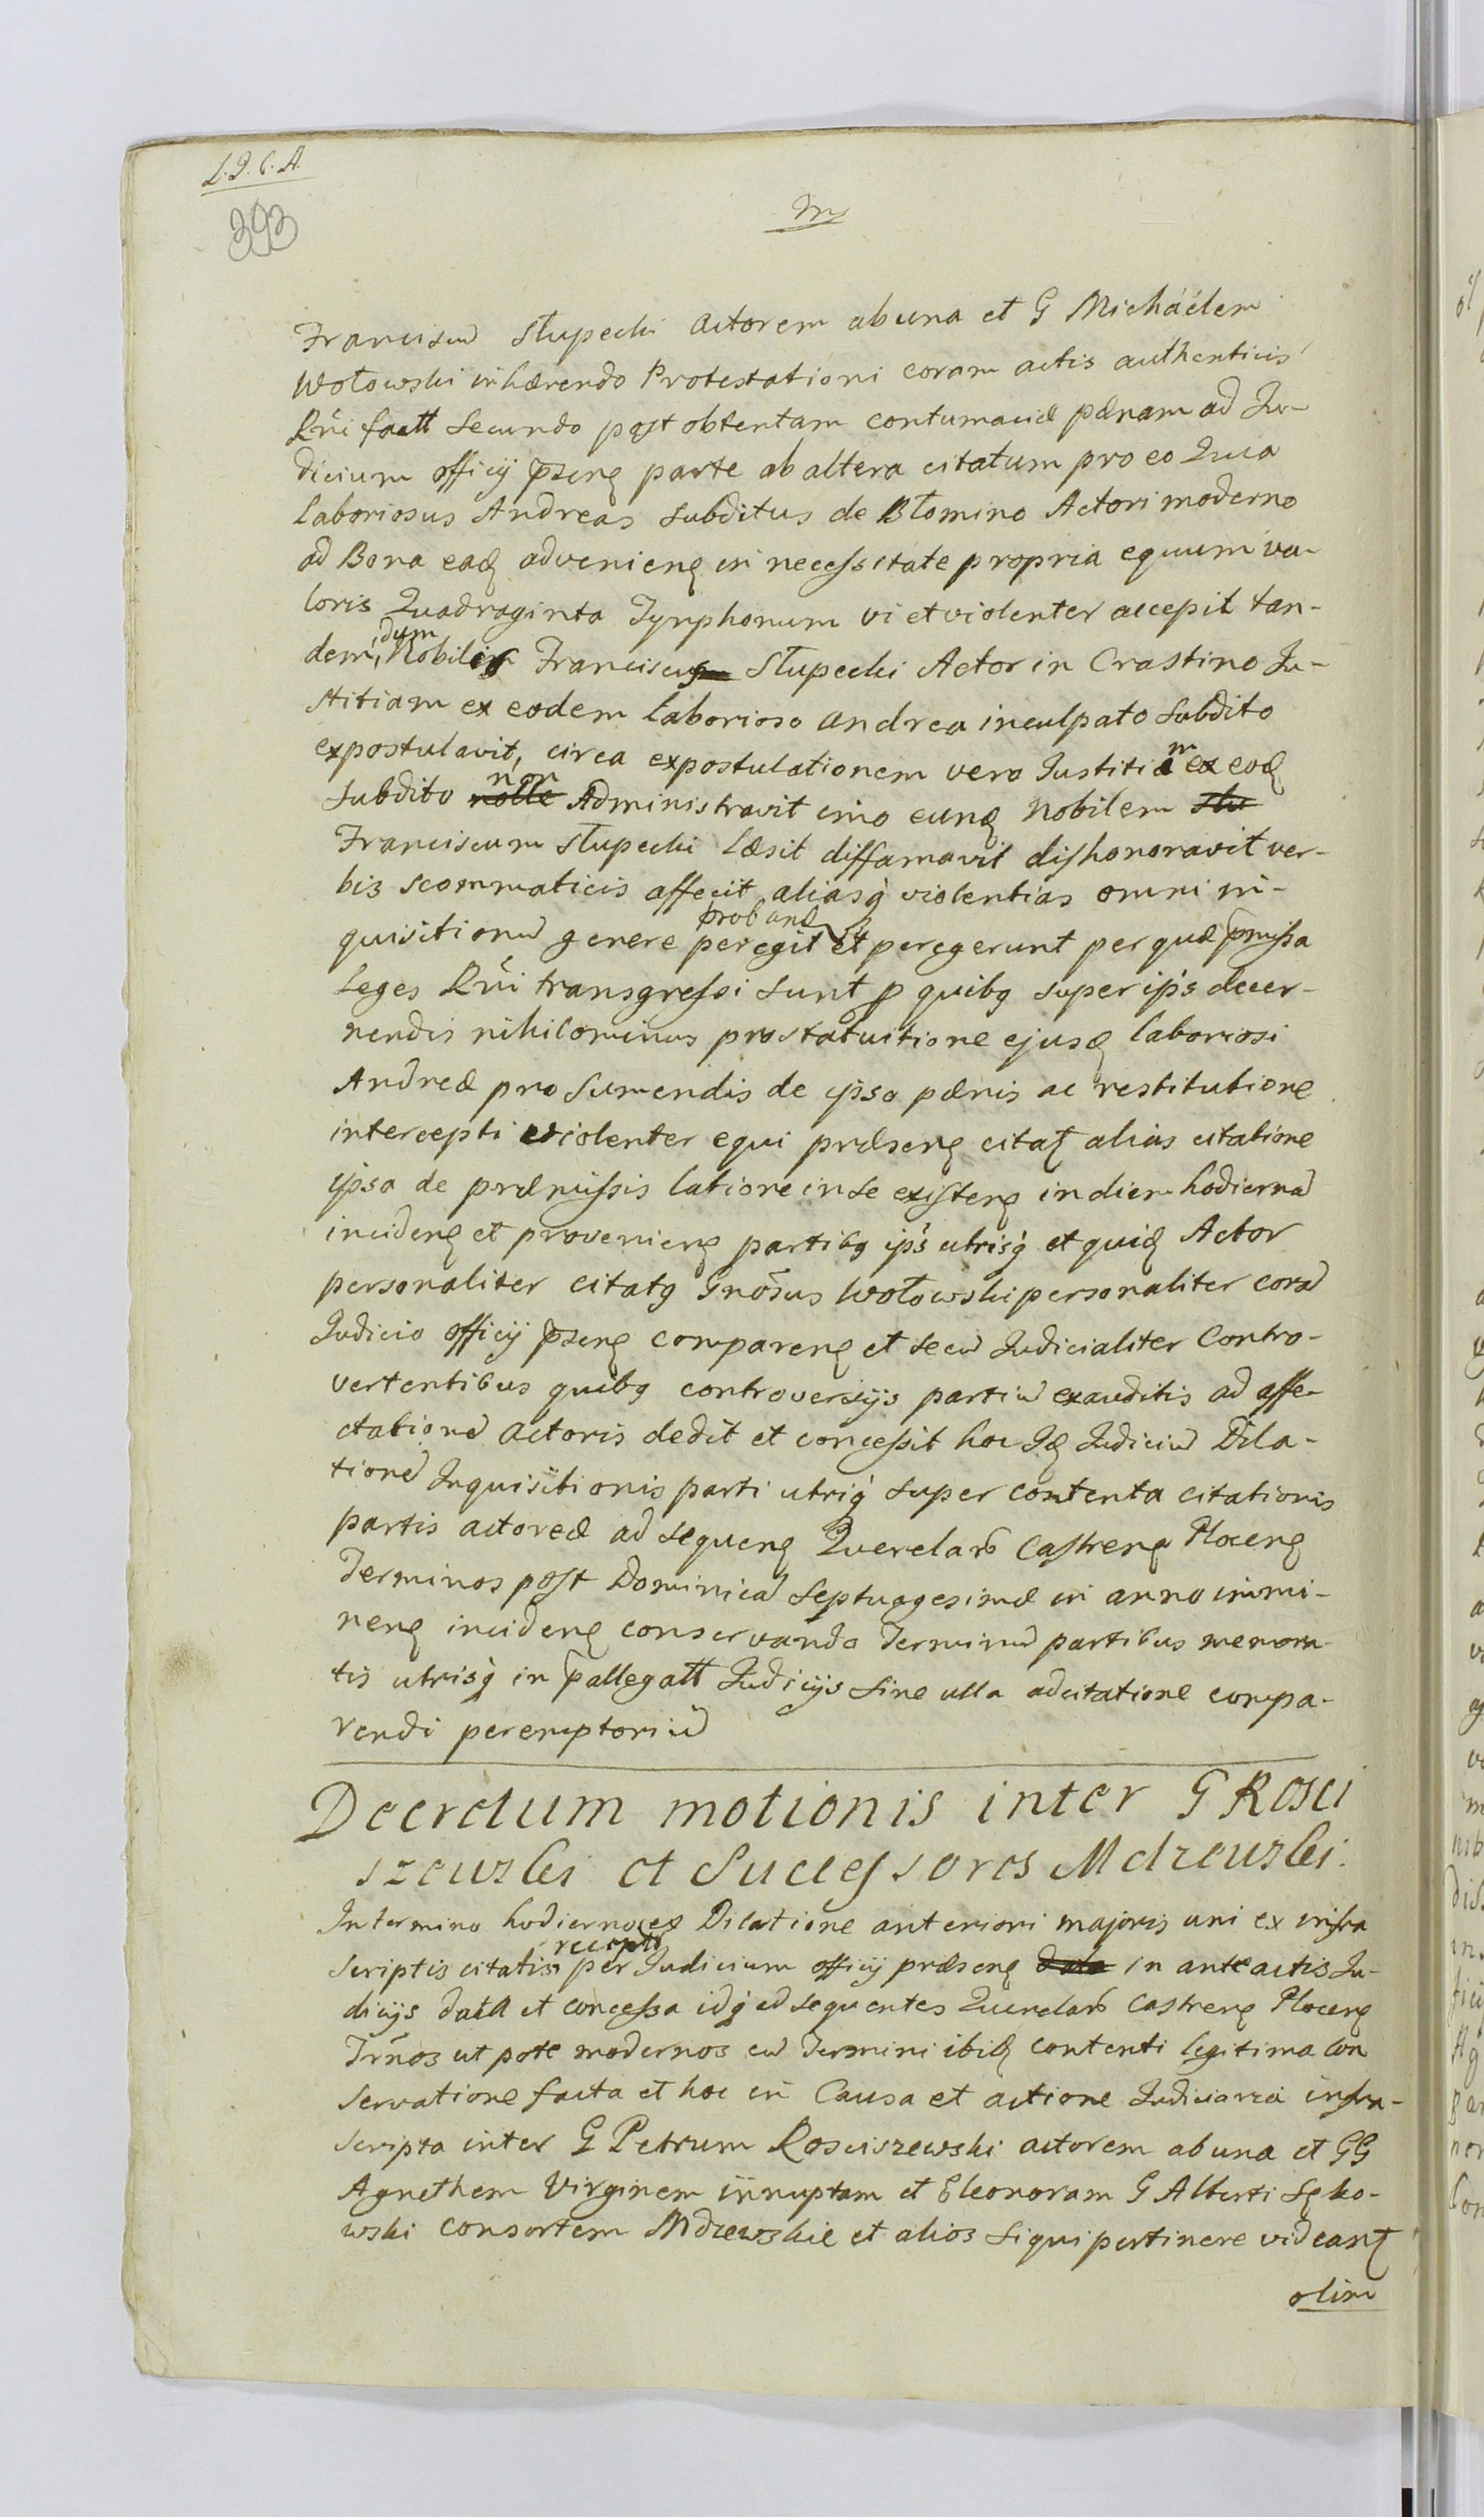 L. J. C. A.
393
Franciscū Słupecki Actorem ab una et G Michäelem
Wołowski inhærendo Protestationi coram actis authenticis
Rńi factt secundo post obtentam contumaciæ pænam ad Ju-
dicium officij p̄señ parte ab altera citatum pro eo Quia
laboriosus Andreas subditus de Błomino Actori moderno
ad Bona eadꝫ advenienꝫ in necessitate propria equum va-
loris Quadraginta Tynphonum vi et violenter accepit tan-
dem, dum Nobilis Franciscus Słupecki Actor in Crastino Ju-
stitiam ex eodem laborioso Andrea inculpato Subdito
expostulavit, circa expostulationem vero Justitiam ex eodꝫ
subdito non Administravit imo eundꝫ Nobilem
Franciscum Słupecki læsit diffamavit dishonoravit ver-
bis scommaticis affecit aliasq́ violentias omni in-
quisitionū genere proband peregit et peregerunt per quæ p̄missa
Leges Rńi transgressi sunt p quibꝫ super ip̄s decer-
nendis nihilominus pro statuitione ejusdꝫ laboriosi
Andreæ pro sumendis de ipso pænis ac restitutione
intercepti violenter equi præsenꝫ citatꝫ alias citatione
ipsa de præmissis latiore in se existenꝫ in diem hodiernā
incidenꝫ et provenienꝫ partibꝫ ip̄s utrisq́ et quidꝫ Actor
personaliter citatꝫ Gnōsus Wołowski personaliter corā
Judicio officij p̄senꝫ comparenꝫ et secū Judicialiter Contro-
vertentibus quibꝫ controversijs partiū exauditis ad affe-
ctationē Actoris dedit et concessit hoc Idꝫ Judiciū Dila-
tionē Inquisitionis parti utriq́ super contenta citationis
partis actoreæ ad sequenꝫ Querelarū Castrenꝫ Plocenꝫ
Terminos post Dominicā Septuagesimæ in anno immi-
nenꝫ incidenꝫ conservando Terminū partibus memora-
tis utrisq́ in p̄allegatt Judicijs sine ulla adcitatione compa-
rendi peremptoriū
Decretum motionis inter G Rosci
szewski et Successores Mdzewski.
In termino hodierno ex Dilatione anteriori majoris uni ex infra
scriptis citatis recepta per Judicium officij præsenꝫ in anteactis Ju-
dicijs data et concessa idq́ ad sequentes Querelarū Castrenꝫ Plocenꝫ
Trńos ut pote modernos cū Termini ibidꝫ contenti legitima con
servatione facta et hoc in Causa et actione Judiciaria infra-
scripta inter G Petrum Rosciszewski actorem ab una et GG
Agnethem Virginem innuptam et Eleonoram G Alberti Sęko-
wski consortem Mdzewskie et alios siqui pertinere videantꝫ
olim